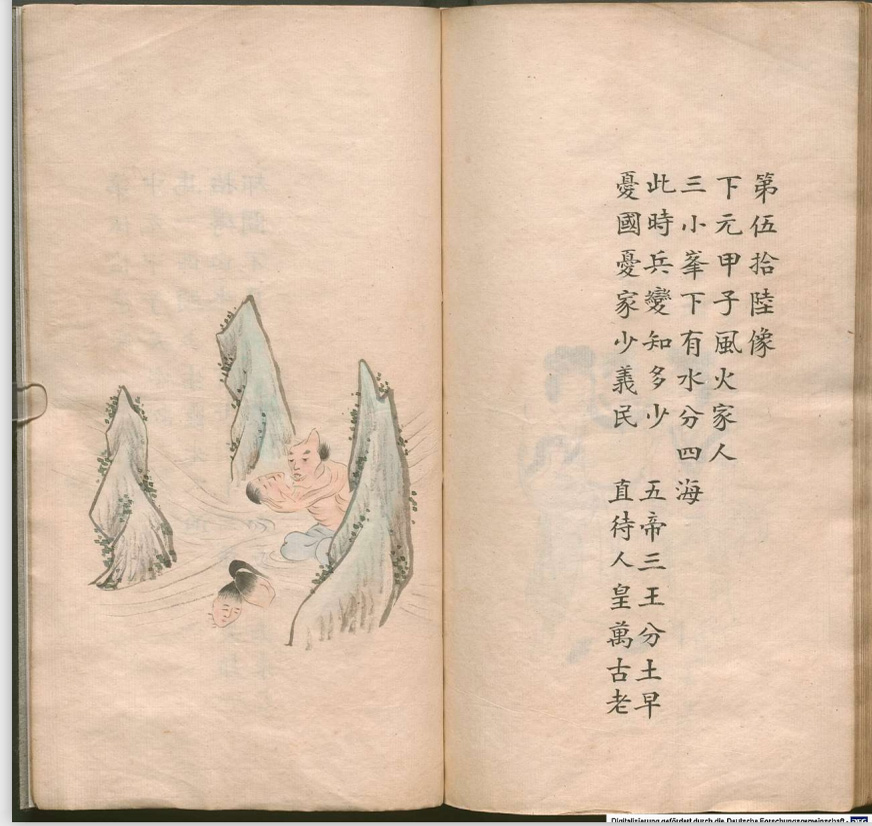 第伍拾陸像
下元甲子風火家人
三小峯下有水分四海
此時兵變知多少 五帝三王分土早
憂國憂家少義民 直待人皇萬古老
Digitalisierung gefördert durch die Deutsche Forschungsgemeinschaft - DFG